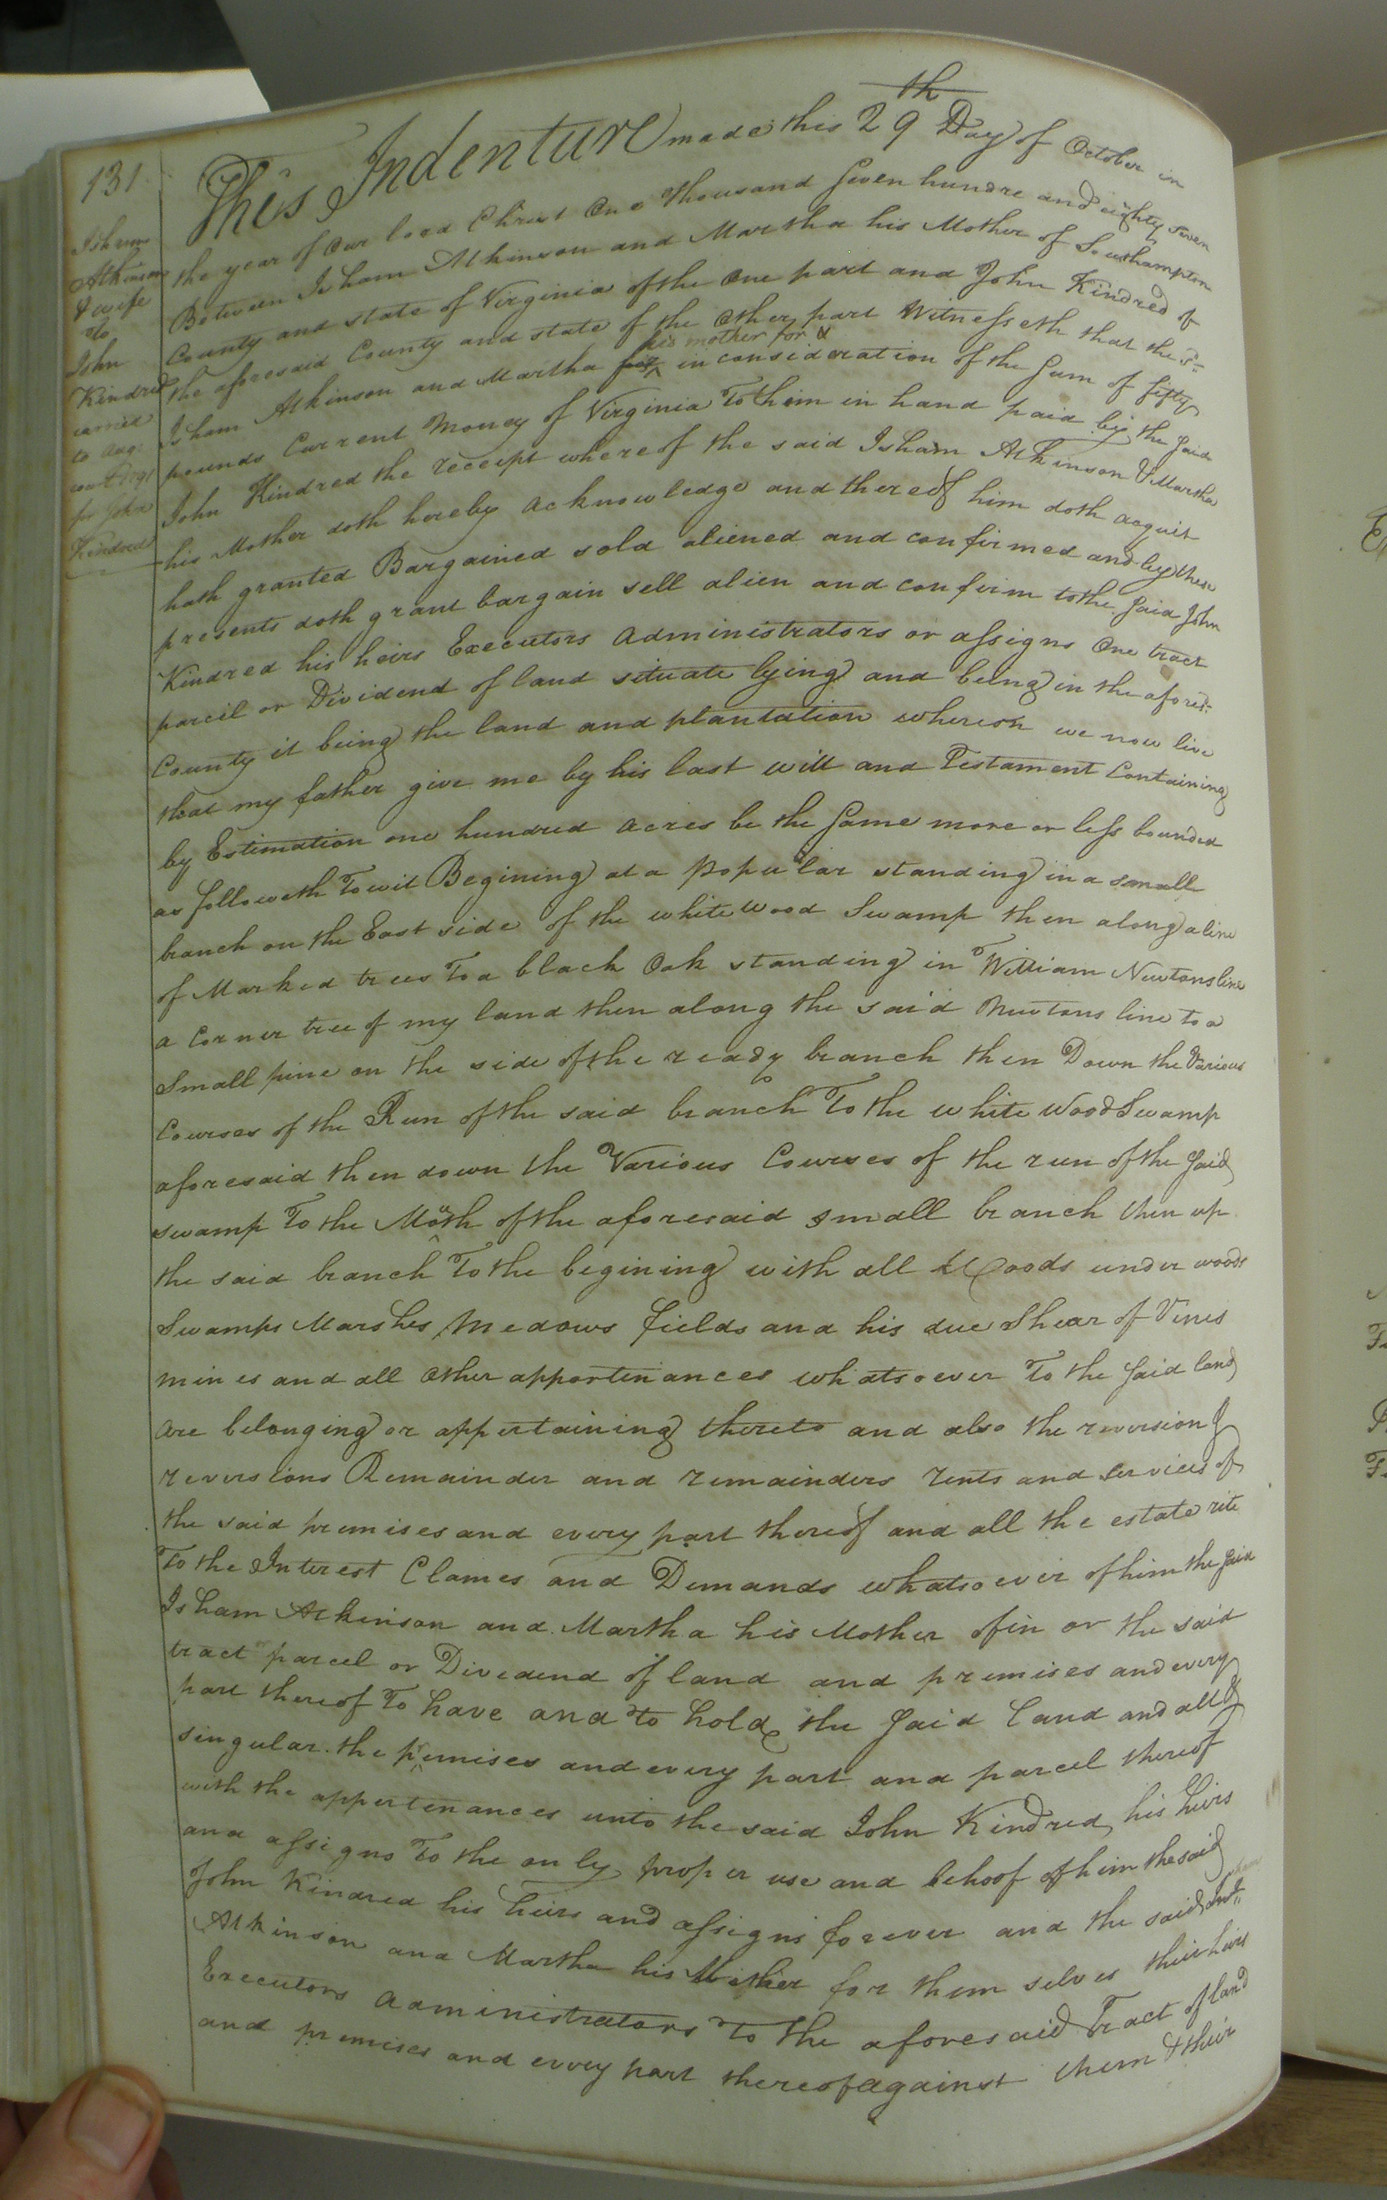 131
Isham
Atkinson
& wife
to
John
Kindred
to Aug:
for John
Kindred
This Indenture made this 29th Day of October in
the year of our lord Christ One thousand Seven hundre and eighty seven
Between Isham Atkinson and Martha his Mother of Southampton
County and state of Virginia of the One part and John Kindred of
the aforesaid County and state of the Other part Witnesseth that the sd.
Isham Atkinson and Martha his mother for & in consideration of the Sum of fifty
pounds Current Money of Virginia To them in hand paid by the Said
John Kindred the receipt whereof the said Isham Atkinson & Martha
his Mother doth hereby acknowledge and thereof him doth acquit
hath granted Bargained sold aliened and confirmed and by these
presents doth grant bargain sell alien and confirm to the Said John
Kindred his heirs Executors administrators or assigns One tract
parcil or Dividend of land situate lying and being in the aforsd.
County it being the land and plantation whereon we now live
that my father give me by his last will and Testament Containing
by Estimation one hundred acres be the Same more or less bounded
as followeth Towit Begining at a populár standing in a small
branch on the East side of the white wood Swamp then along a line
of Marked trees To a black Oak standing in William Newtons line
a Corner tree of my land then along the said Newtons line to a
Small pine on the side of the ready branch then Down the Various
Courses of the Run of the said branch To the white Wood Swamp
aforesaid then down the Various Courses of the run of the Said
swamp To the Mouth of the aforesaid small branch then up
the said branch To the begining with all Woods under woods
Swamps Marshes Medows fields and his due Shear of Vines
mines and all Other apportinances whatsoever To the Said land
are belonging or appertaining thereto and also the reversion &
reversions Remainder and remainders rents and services of
the said premises and every part thereof and all the estate rite
To the Interest Clames and Demands whatsoever of him the Said
Isham Atkinson and Martha his Mother of in or the said
tract or parcel or Dividend of land and premises and every
part thereof To have and to hold the Said land and all &
singular the premises and every part and parcel thereof
with the appertenances unto the said John Kindred his heirs
and assigns To the only proper use and behoof of him the said
John Kindred his heirs and assigns forever and the said
Atkinson and Martha his Mother for them selves their heirs
Executors administrators To the aforesaid Tract of land
and premises and every part thereof against them & their